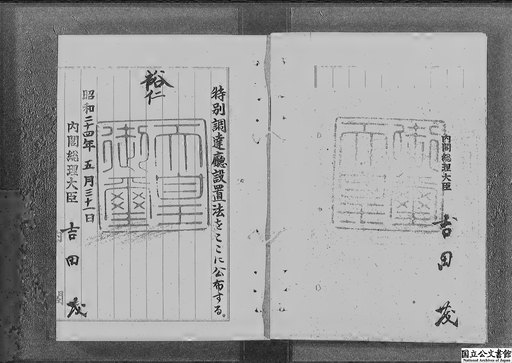 内閣総理大臣
吉田茂
特別調達廳設置法をここに公布する。
裕仁
天皇御璽
昭和二十四年五月三十一日
内閣総理大臣
吉田茂
国立公文書館
National Archives of Japan